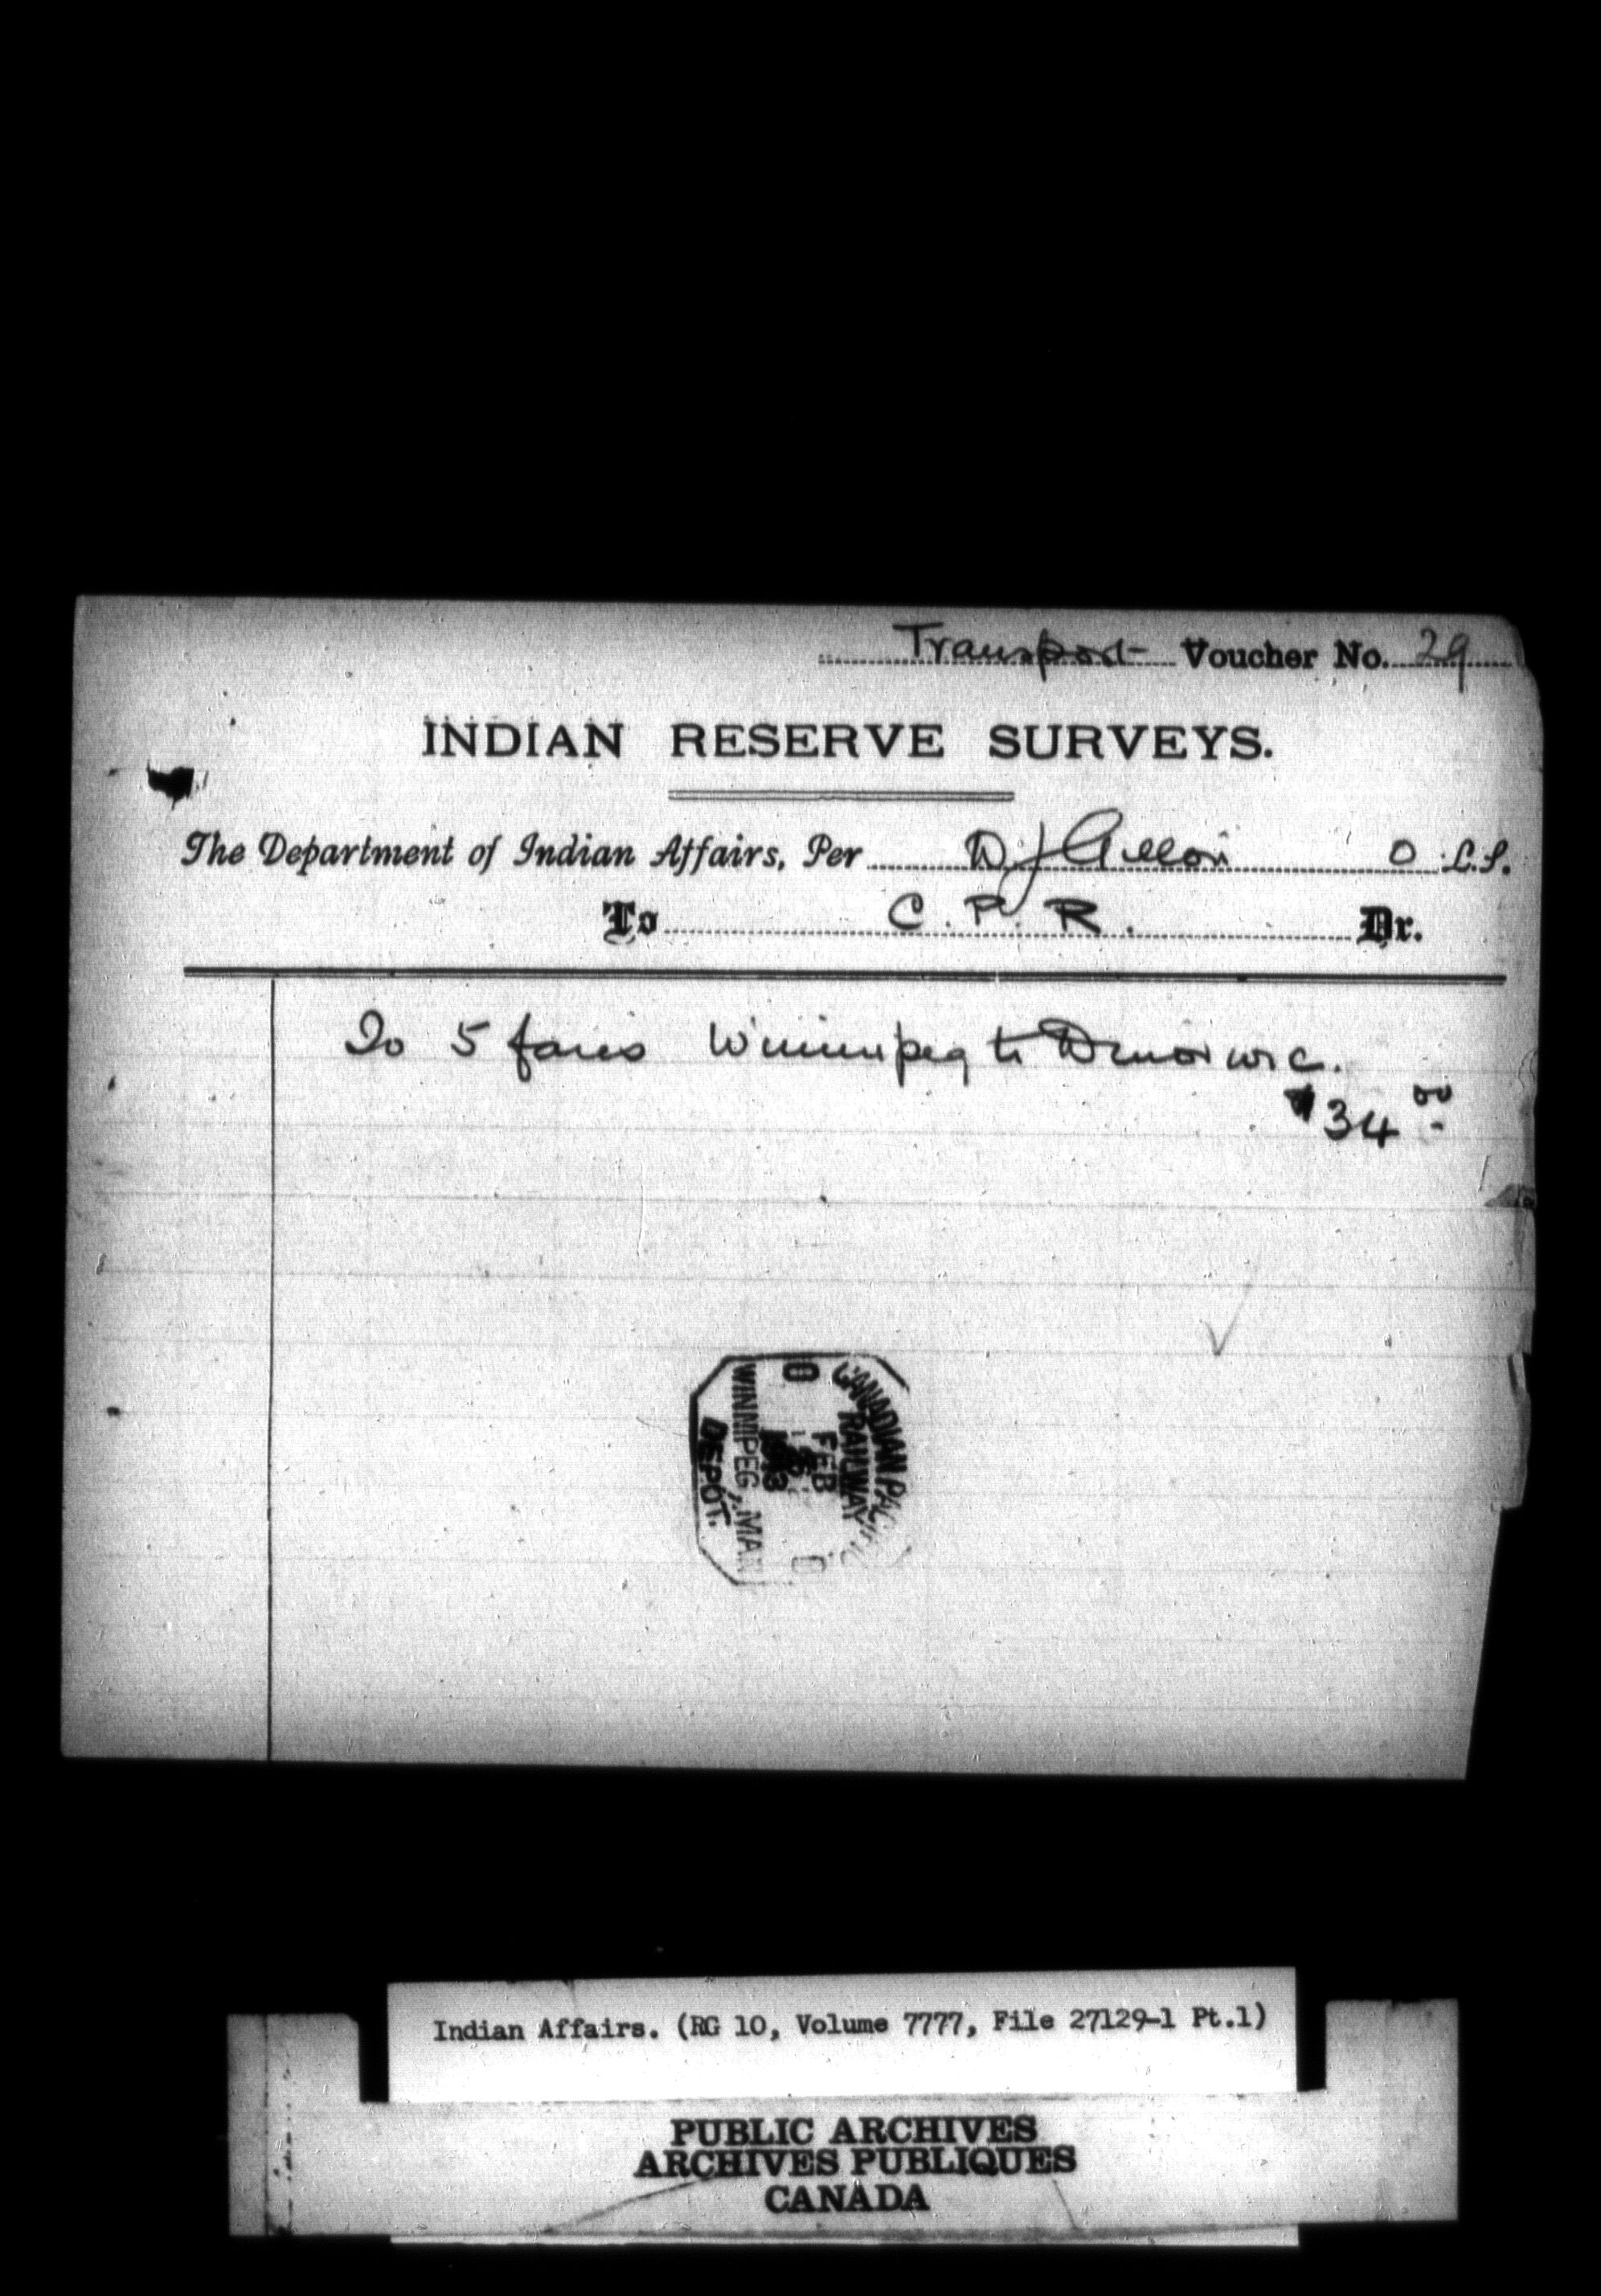 Transport Voucher No. 29
INDIAN RESERVE SURVEYS.
The Department of Indian Affairs, Per D J Gillon O L.S.
To C. P. R. Dr.
To 5 fares Winnipeg to Dinorwic.
$34.00
CANADIAN PACIFIC
RAILWAY
FEB
WINNIPEG, MAN
DEPOT.
Indian Affairs. (RG 10, Volume 7777, File 27129-1 Pt.1)
PUBLIC ARCHIVES
ARCHIVES PUBLIQUES
CANADA